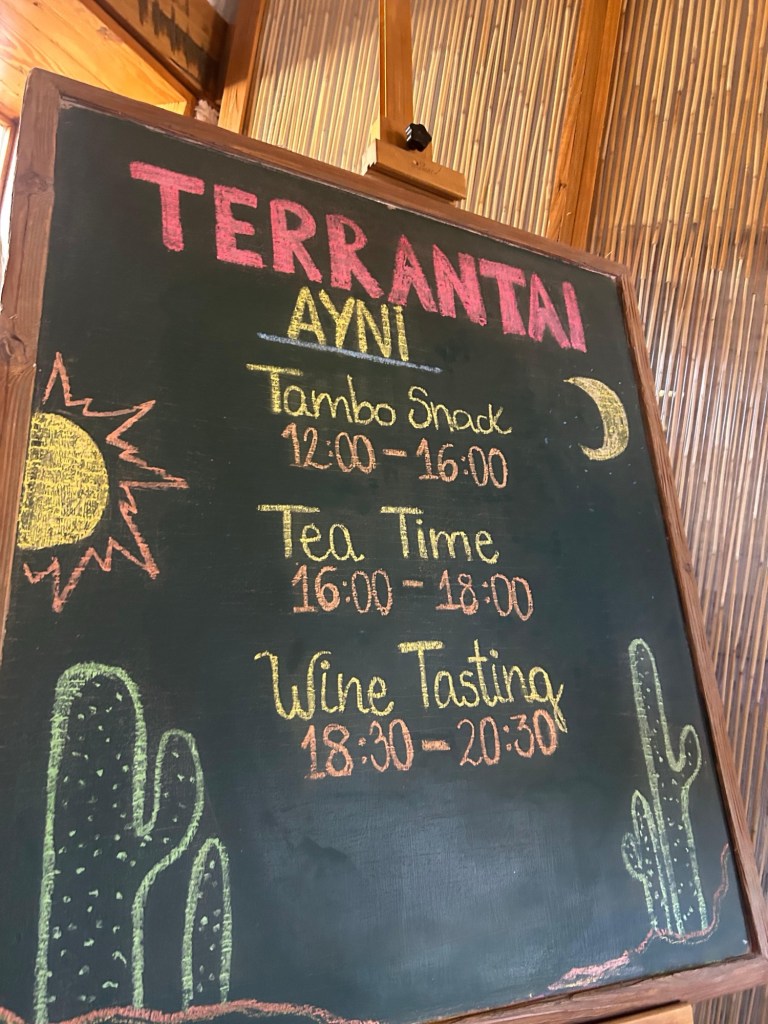 TERRANTAI
AYNI
Tambo Snack
12:00 - 16:00
Tea Time
16:00 - 18:00
Wine Tasting
18:30 - 20:30